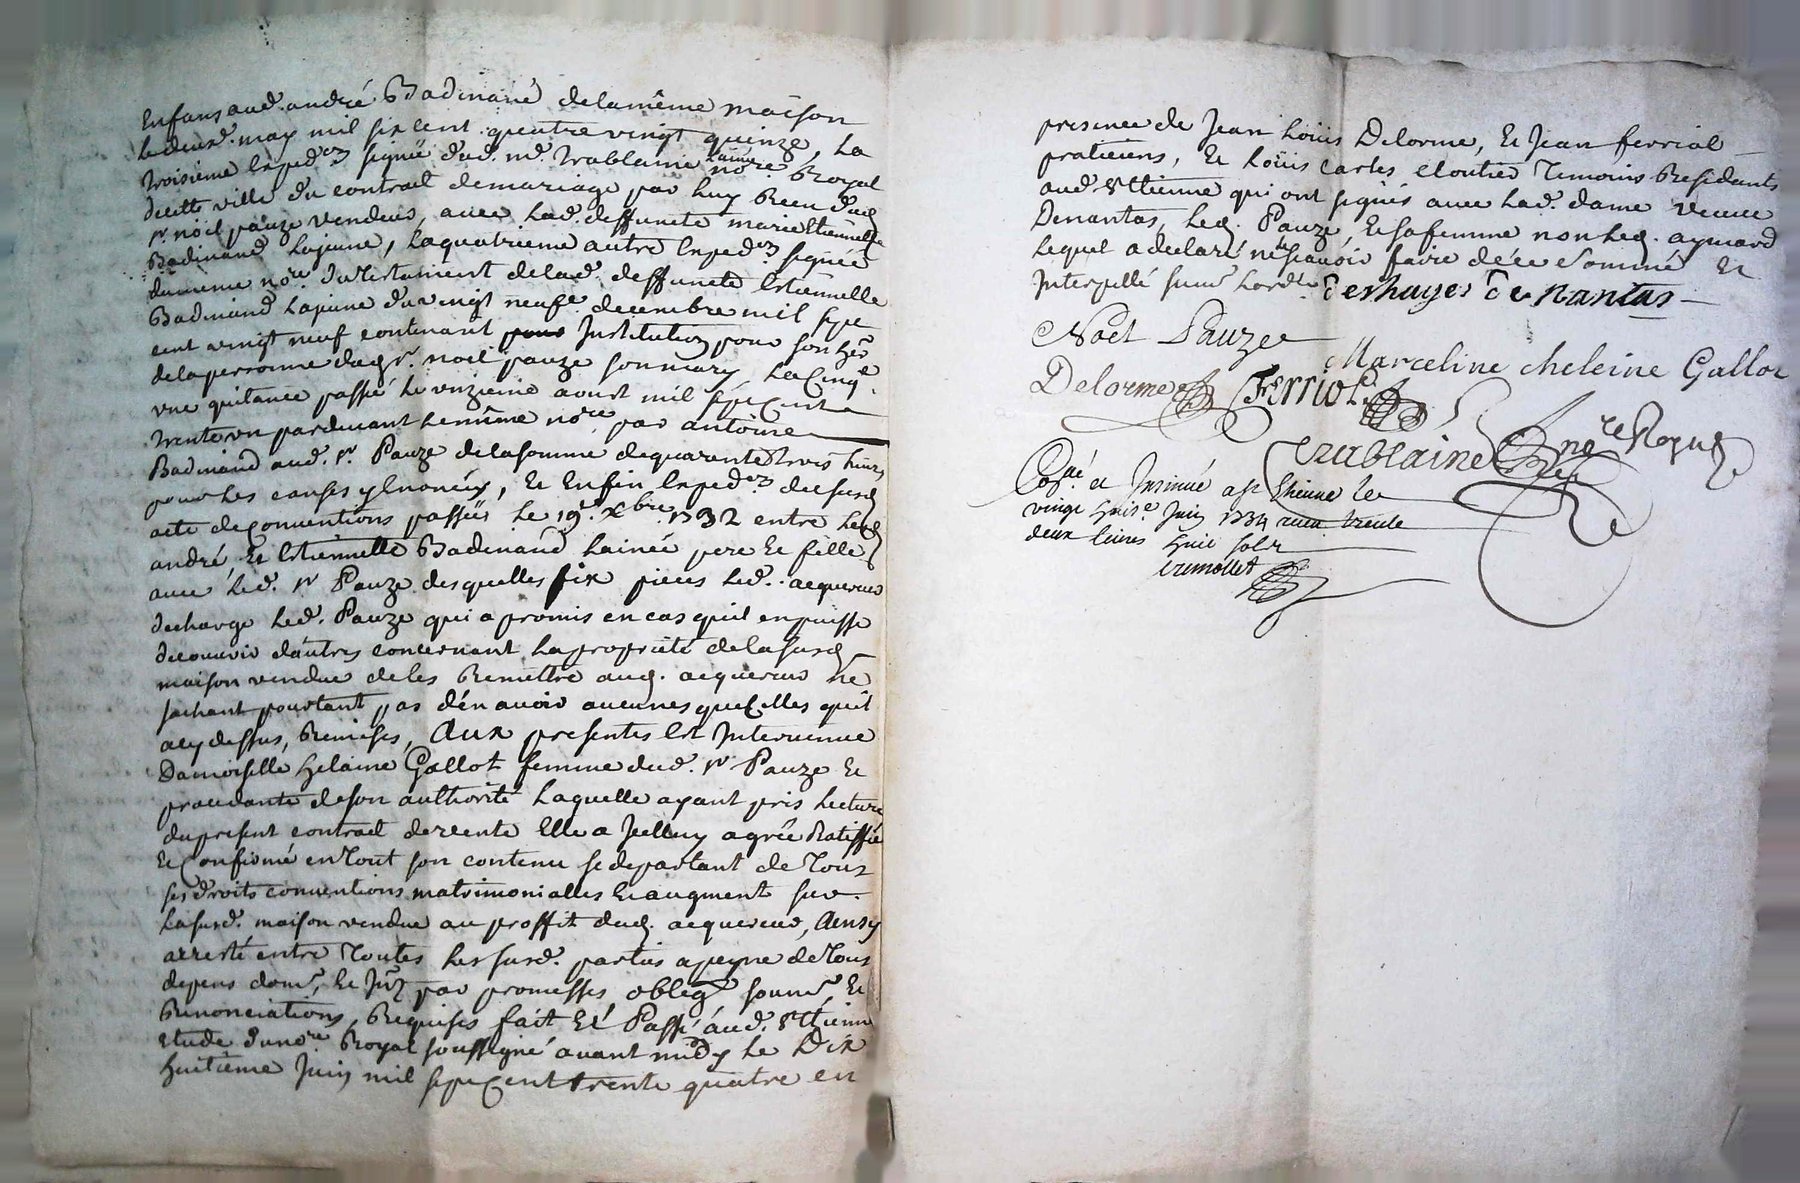 Enfans aud. andré Badinand dela même maison
le deux.e may mil six cent quatre vingt quinze, La
troisième Exped.on signée dud. m.e Trablaine L'ainé no.re Royal
decette ville du contrat demariage par luy Receu dud.
s.r noël pauze vendeur, avec Lad. deffuncte marie Etiennette
Badinand Lajeune, Laquatrieme autre Exped.on signée
du meme no.re du Testament delad. deffuncte Estiennette
Badinand Lajeune du vingt neuf.e decembre mil sept
cent vingt neuf contenant Institution pour son her.
dela personne dud. s.r noël pauze son mary, La Cinq.e
une quitance passée le unzieme aoust mil sept Cent
trente un pardevant Lemême no.re par antoine
Badinand aud. s.r Pauze delasomme dequarante trois Livres
pour les causes y Enoncées, Et Enfin Exped.on du susd.
acte deconventions passées le 19.e Xbre 1732 entre led.
andré, Et Estiennette Badinand Lainée pere Et fille
avec led. s.r Pauze desquelles six pieces led. acquereur
decharge led. Pauze qui a promis en cas quil en puisse
decouvrir dautres concernant Lapropriété delasusd.
maison vendue deles Remettre aud. acquereur ne
sachant pourtant pas d'en avoir aucunes que Celles quil
acy dessus, Remises, Aux presentes Est Intervenue
Damoiselle helaine Gallot femme dud. s.r Pauze Et
procedante deson authorité Laquelle ayant pris Lecture
dupresent contrat devente Elle a Icelluy agréé Ratiffié
Et Confirmé en Tout son contenu se departant de Tous
ses droits conventions matrimonialles Et augment sur
Lasusd. maison vendue au proffit dud. acquereur, Ainsy
arresté entre Toutes Les susd. parties apeyne de Tous
depens dom. Et Int. par promesses, oblig. soum. Et
Renonciations Requises fait Et Passé aud. S.t Etienne
Etude dunore Royal soussigné avant midy le Dix
huitieme Juin mil sept Cent trente quatre en
presence de Jean Loüis Delorme, Et Jean ferriol
praticiens, Et Loüis Cartes cloutier Temoins Residants
aud. S.t Etienne qui ont signés avec Lad. dame veuve
Denantas, led. Pauze, Et safemme non led. aymard
lequel a declaré ne sçavoir faire de ce Sommé Et
Interpellé suiv. Lord.ce deshayes de Nantas
Noël Pauze
Marceline heleine Gallot
Delorme Ferriol
Trablaine no.re Royal
Con.lé et Insinué a St Etienne le
vingt huit.e Juin 1734 receu trente
deux livres huit sols
tremollet